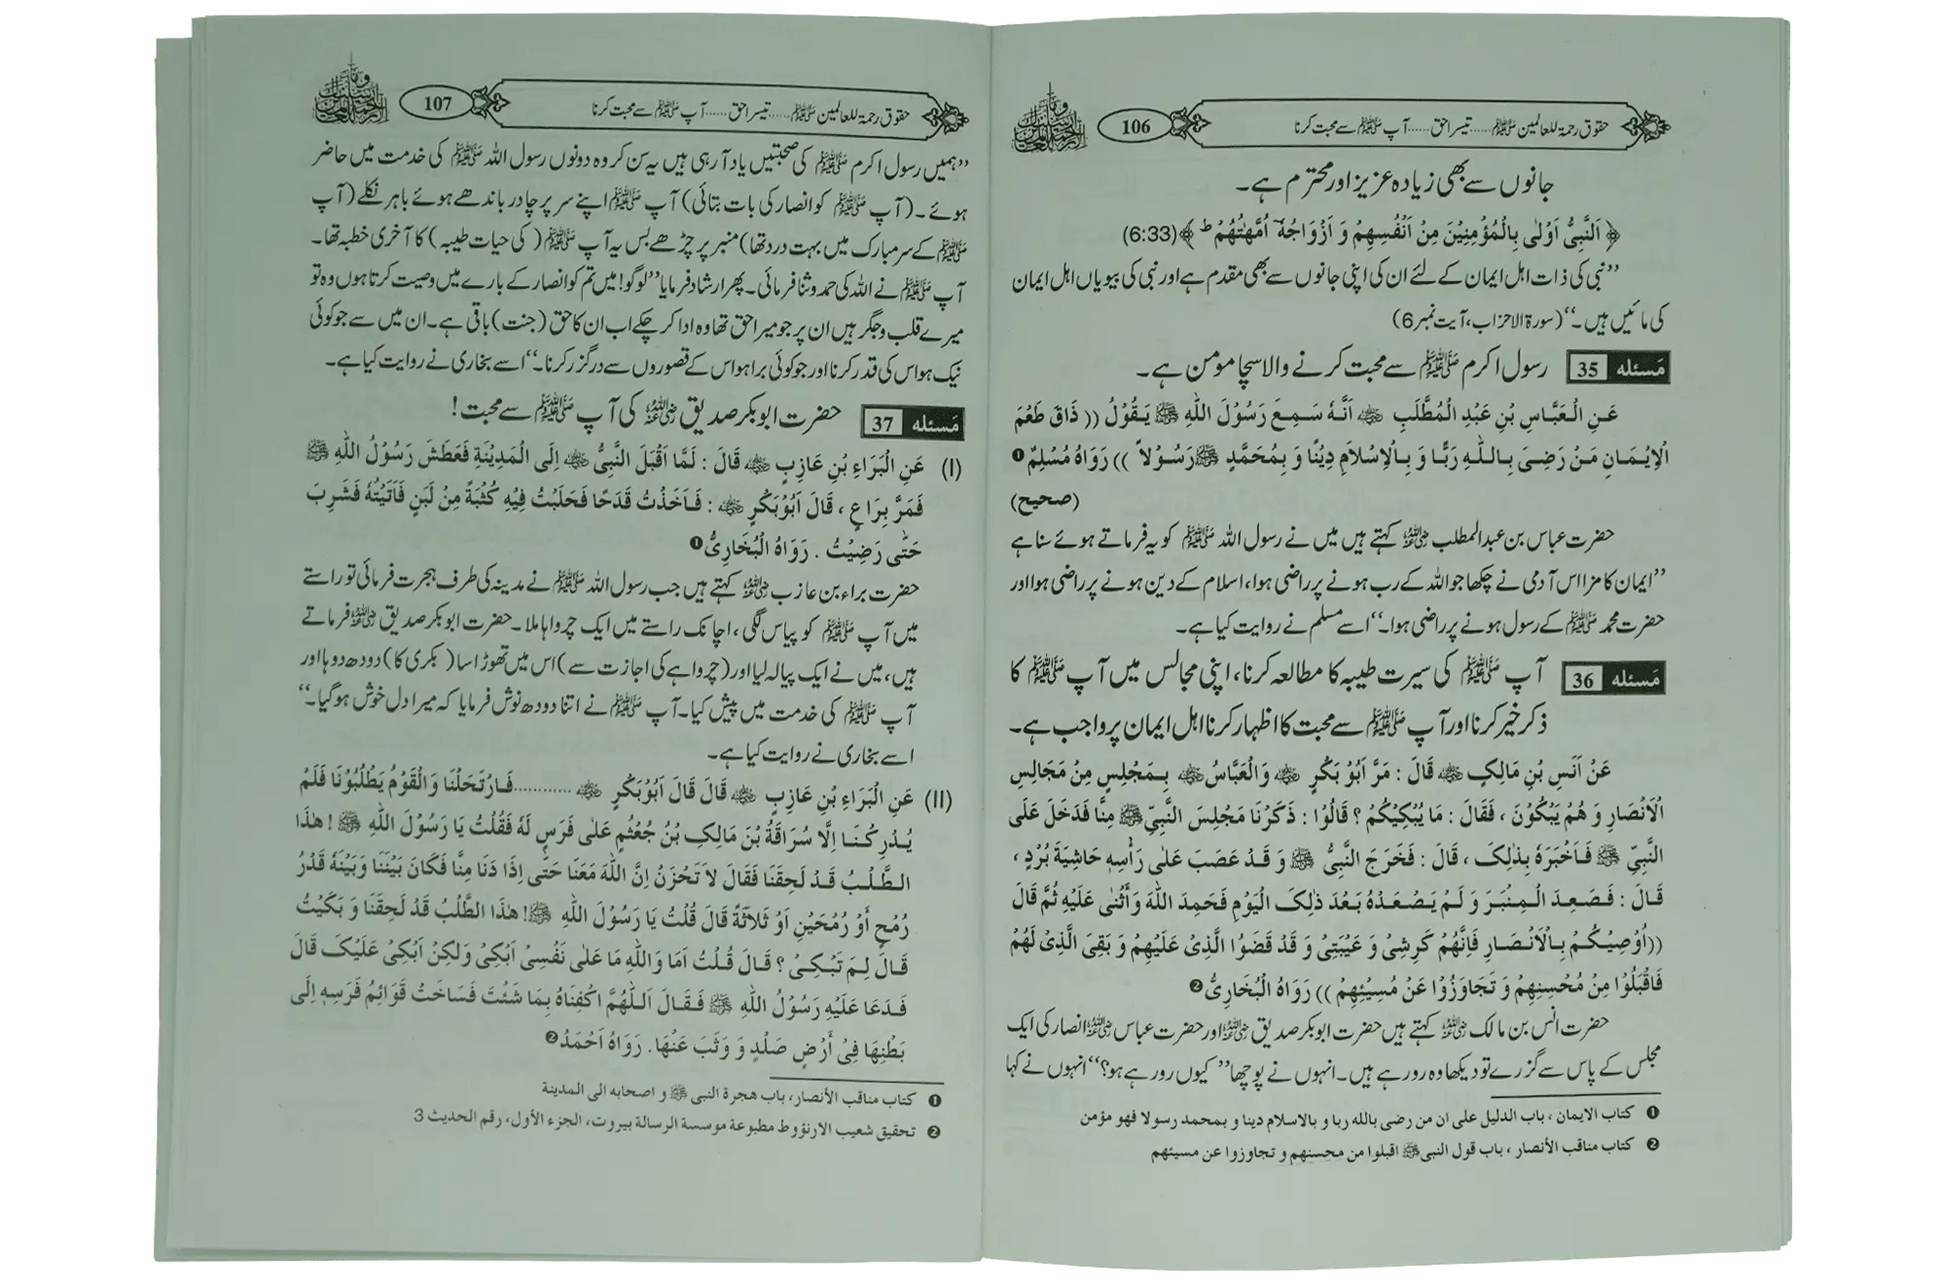 106
حقوق رحمۃ للعالمین ﷺ......تیسرا حق......آپ ﷺ سے محبت کرنا
جانوں سے بھی زیادہ عزیز اور محترم ہے۔
﴿ اَلنَّبِیُّ اَوْلٰی بِالْمُؤْمِنِیْنَ مِنْ اَنْفُسِهِمْ وَ اَزْوَاجُهٗۤ اُمَّهٰتُهُمْ ط ﴾(6:33)
’’نبی کی ذات اہل ایمان کے لئے ان کی اپنی جانوں سے بھی مقدم ہے اور نبی کی بیویاں اہل ایمان
کی مائیں ہیں۔‘‘ (سورۃ الاحزاب، آیت نمبر 6)
مَسئله 35 رسول اکرم ﷺ سے محبت کرنے والا سچا مومن ہے۔
عَنِ الْعَبَّاسِ بْنِ عَبْدِ الْمُطَّلِبِ ؓ اَنَّهٗ سَمِعَ رَسُوْلَ اللّٰهِ ﷺ یَقُوْلُ (( ذَاقَ طَعْمَ
الْاِیْمَانِ مَنْ رَضِیَ بِاللّٰهِ رَبًّا وَ بِالْاِسْلاَمِ دِیْنًا وَ بِمُحَمَّدٍ ﷺ رَسُوْلاً )) رَوَاهُ مُسْلِمٌ❶
(صحیح)
حضرت عباس بن عبدالمطلب ؓ کہتے ہیں میں نے رسول اللہ ﷺ کو یہ فرماتے ہوئے سنا ہے
’’ایمان کا مزا اس آدمی نے چکھا جو اللہ کے رب ہونے پر راضی ہوا، اسلام کے دین ہونے پر راضی ہوا اور
حضرت محمد ﷺ کے رسول ہونے پر راضی ہوا۔‘‘ اسے مسلم نے روایت کیا ہے۔
مَسئله 36 آپ ﷺ کی سیرت طیبہ کا مطالعہ کرنا، اپنی مجالس میں آپ ﷺ کا
ذکر خیر کرنا اور آپ ﷺ سے محبت کا اظہار کرنا اہل ایمان پر واجب ہے۔
عَنْ اَنَسِ بْنِ مَالِکٍ ؓ قَالَ : مَرَّ اَبُوْ بَکْرٍ ؓ وَالْعَبَّاسُ ؓ بِمَجْلِسٍ مِنْ مَجَالِسِ
الْاَنْصَارِ وَ هُمْ یَبْکُوْنَ ، فَقَالَ : مَا یُبْکِیْکُمْ ؟ قَالُوْا : ذَکَرْنَا مَجْلِسَ النَّبِیِّ ﷺ مِنَّا فَدَخَلَ عَلَی
النَّبِیِّ ﷺ فَاَخْبَرَهٗ بِذٰلِکَ ، قَالَ : فَخَرَجَ النَّبِیُّ ﷺ وَ قَدْ عَصَبَ عَلٰی رَأْسِهٖ حَاشِیَةَ بُرْدٍ ،
قَالَ : فَصَعِدَ الْمِنْبَرَ وَ لَمْ یَصْعَدْهُ بَعْدَ ذٰلِکَ الْیَوْمِ فَحَمِدَ اللّٰهَ وَ أَثْنٰی عَلَیْهِ ثُمَّ قَالَ
((اُوْصِیْکُمْ بِالْاَنْصَارِ فَاِنَّهُمْ کَرِشِیْ وَ عَیْبَتِیْ وَ قَدْ قَضَوُا الَّذِیْ عَلَیْهِمْ وَ بَقِیَ الَّذِیْ لَهُمْ
فَاقْبَلُوْا مِنْ مُحْسِنِهِمْ وَ تَجَاوَزُوْا عَنْ مُسِیْئِهِمْ )) رَوَاهُ الْبُخَارِیُّ❷
حضرت انس بن مالک ؓ کہتے ہیں حضرت ابوبکر صدیق ؓ اور حضرت عباس ؓ انصار کی ایک
مجلس کے پاس سے گزرے تو دیکھا وہ رو رہے ہیں۔ انہوں نے پوچھا ’’کیوں رو رہے ہو؟‘‘ انہوں نے کہا
❶ کتاب الایمان ، باب الدلیل علی ان من رضی بالله ربا و بالاسلام دینا و بمحمد رسولا فهو مؤمن
❷ کتاب مناقب الأنصار ، باب قول النبی ﷺ اقبلوا من محسنهم و تجاوزوا عن مسیئهم
107
حقوق رحمۃ للعالمین ﷺ......تیسرا حق......آپ ﷺ سے محبت کرنا
’’ہمیں رسول اکرم ﷺ کی صحبتیں یاد آ رہی ہیں یہ سن کر وہ دونوں رسول اللہ ﷺ کی خدمت میں حاضر
ہوئے۔ (آپ ﷺ کو انصار کی بات بتائی) آپ ﷺ اپنے سر پر چادر باندھے ہوئے باہر نکلے (آپ
ﷺ کے سر مبارک میں بہت درد تھا) منبر پر چڑھے بس یہ آپ ﷺ (کی حیات طیبہ) کا آخری خطبہ تھا۔
آپ ﷺ نے اللہ کی حمد و ثنا فرمائی۔ پھر ارشاد فرمایا ’’لوگو! میں تم کو انصار کے بارے میں وصیت کرتا ہوں وہ تو
میرے قلب و جگر ہیں ان پر جو میرا حق تھا وہ ادا کر چکے اب ان کا حق (جنت) باقی ہے۔ ان میں سے جو کوئی
نیک ہو اس کی قدر کرنا اور جو کوئی برا ہو اس کے قصوروں سے درگزر کرنا۔‘‘ اسے بخاری نے روایت کیا ہے۔
مَسئله 37 حضرت ابوبکر صدیق ؓ کی آپ ﷺ سے محبت!
(I) عَنِ الْبَرَاءِ بْنِ عَازِبٍ ؓ قَالَ : لَمَّا اَقْبَلَ النَّبِیُّ ﷺ اِلَی الْمَدِیْنَةِ فَعَطَشَ رَسُوْلُ اللّٰهِ ﷺ
فَمَرَّ بِرَاعٍ ، قَالَ اَبُوْبَکْرٍ ؓ : فَاَخَذْتُ قَدَحًا فَحَلَبْتُ فِیْهِ کُثْبَةً مِنْ لَبَنٍ فَاَتَیْتُهٗ فَشَرِبَ
حَتّٰی رَضِیْتُ . رَوَاهُ الْبُخَارِیُّ❶
حضرت براء بن عازب ؓ کہتے ہیں جب رسول اللہ ﷺ نے مدینہ کی طرف ہجرت فرمائی تو راستے
میں آپ ﷺ کو پیاس لگی، اچانک راستے میں ایک چرواہا ملا۔ حضرت ابوبکر صدیق ؓ فرماتے
ہیں، میں نے ایک پیالہ لیا اور (چرواہے کی اجازت سے) اس میں تھوڑا سا (بکری کا) دودھ دوہا اور
آپ ﷺ کی خدمت میں پیش کیا۔ آپ ﷺ نے اتنا دودھ نوش فرمایا کہ میرا دل خوش ہوگیا۔‘‘
اسے بخاری نے روایت کیا ہے۔
(II) عَنِ الْبَرَاءِ بْنِ عَازِبٍ ؓ قَالَ قَالَ اَبُوْبَکْرٍ ؓ ............فَارْتَحَلْنَا وَالْقَوْمُ یَطْلُبُوْنَا فَلَمْ
یُدْرِکْنَا اِلَّا سُرَاقَةُ بْنَ مَالِکِ بْنُ جُعْثُمٍ عَلٰی فَرَسٍ لَهٗ فَقُلْتُ یَا رَسُوْلَ اللّٰهِ ﷺ ! هٰذَا
الطَّلْبُ قَدْ لَحِقَنَا فَقَالَ لاَ تَحْزَنْ اِنَّ اللّٰهَ مَعَنَا حَتّٰی اِذَا دَنَا مِنَّا فَکَانَ بَیْنَنَا وَ بَیْنَهٗ قَدْرُ
رُمْحٍ أَوْ رُمْحَیْنِ اَوْ ثَلاَثَةً قَالَ قُلْتُ یَا رَسُوْلَ اللّٰهِ ﷺ! هٰذَا الطَّلْبُ قَدْ لَحِقَنَا وَ بَکَیْتُ
قَالَ لِمَ تَبْکِیْ ؟ قَالَ قُلْتُ اَمَا وَاللّٰهِ مَا عَلٰی نَفْسِیْ اَبْکِیْ وَلٰکِنْ اَبْکِیْ عَلَیْکَ قَالَ
فَدَعَا عَلَیْهِ رَسُوْلُ اللّٰهِ ﷺ فَقَالَ اَللّٰهُمَّ اکْفِنَاهُ بِمَا شَئْتَ فَسَاخَتْ قَوَائِمُ فَرَسِهٖ اِلٰی
بَطْنِهَا فِیْ أَرْضٍ صَلْدٍ وَ وَثَبَ عَنْهَا. رَوَاهُ اَحْمَدُ❷
❶ کتاب مناقب الأنصار، باب هجرة النبی ﷺ و اصحابه الی المدینة
❷ تحقیق شعیب الارنؤوط مطبوعة موسسة الرسالة بیروت، الجزء الأول، رقم الحدیث 3